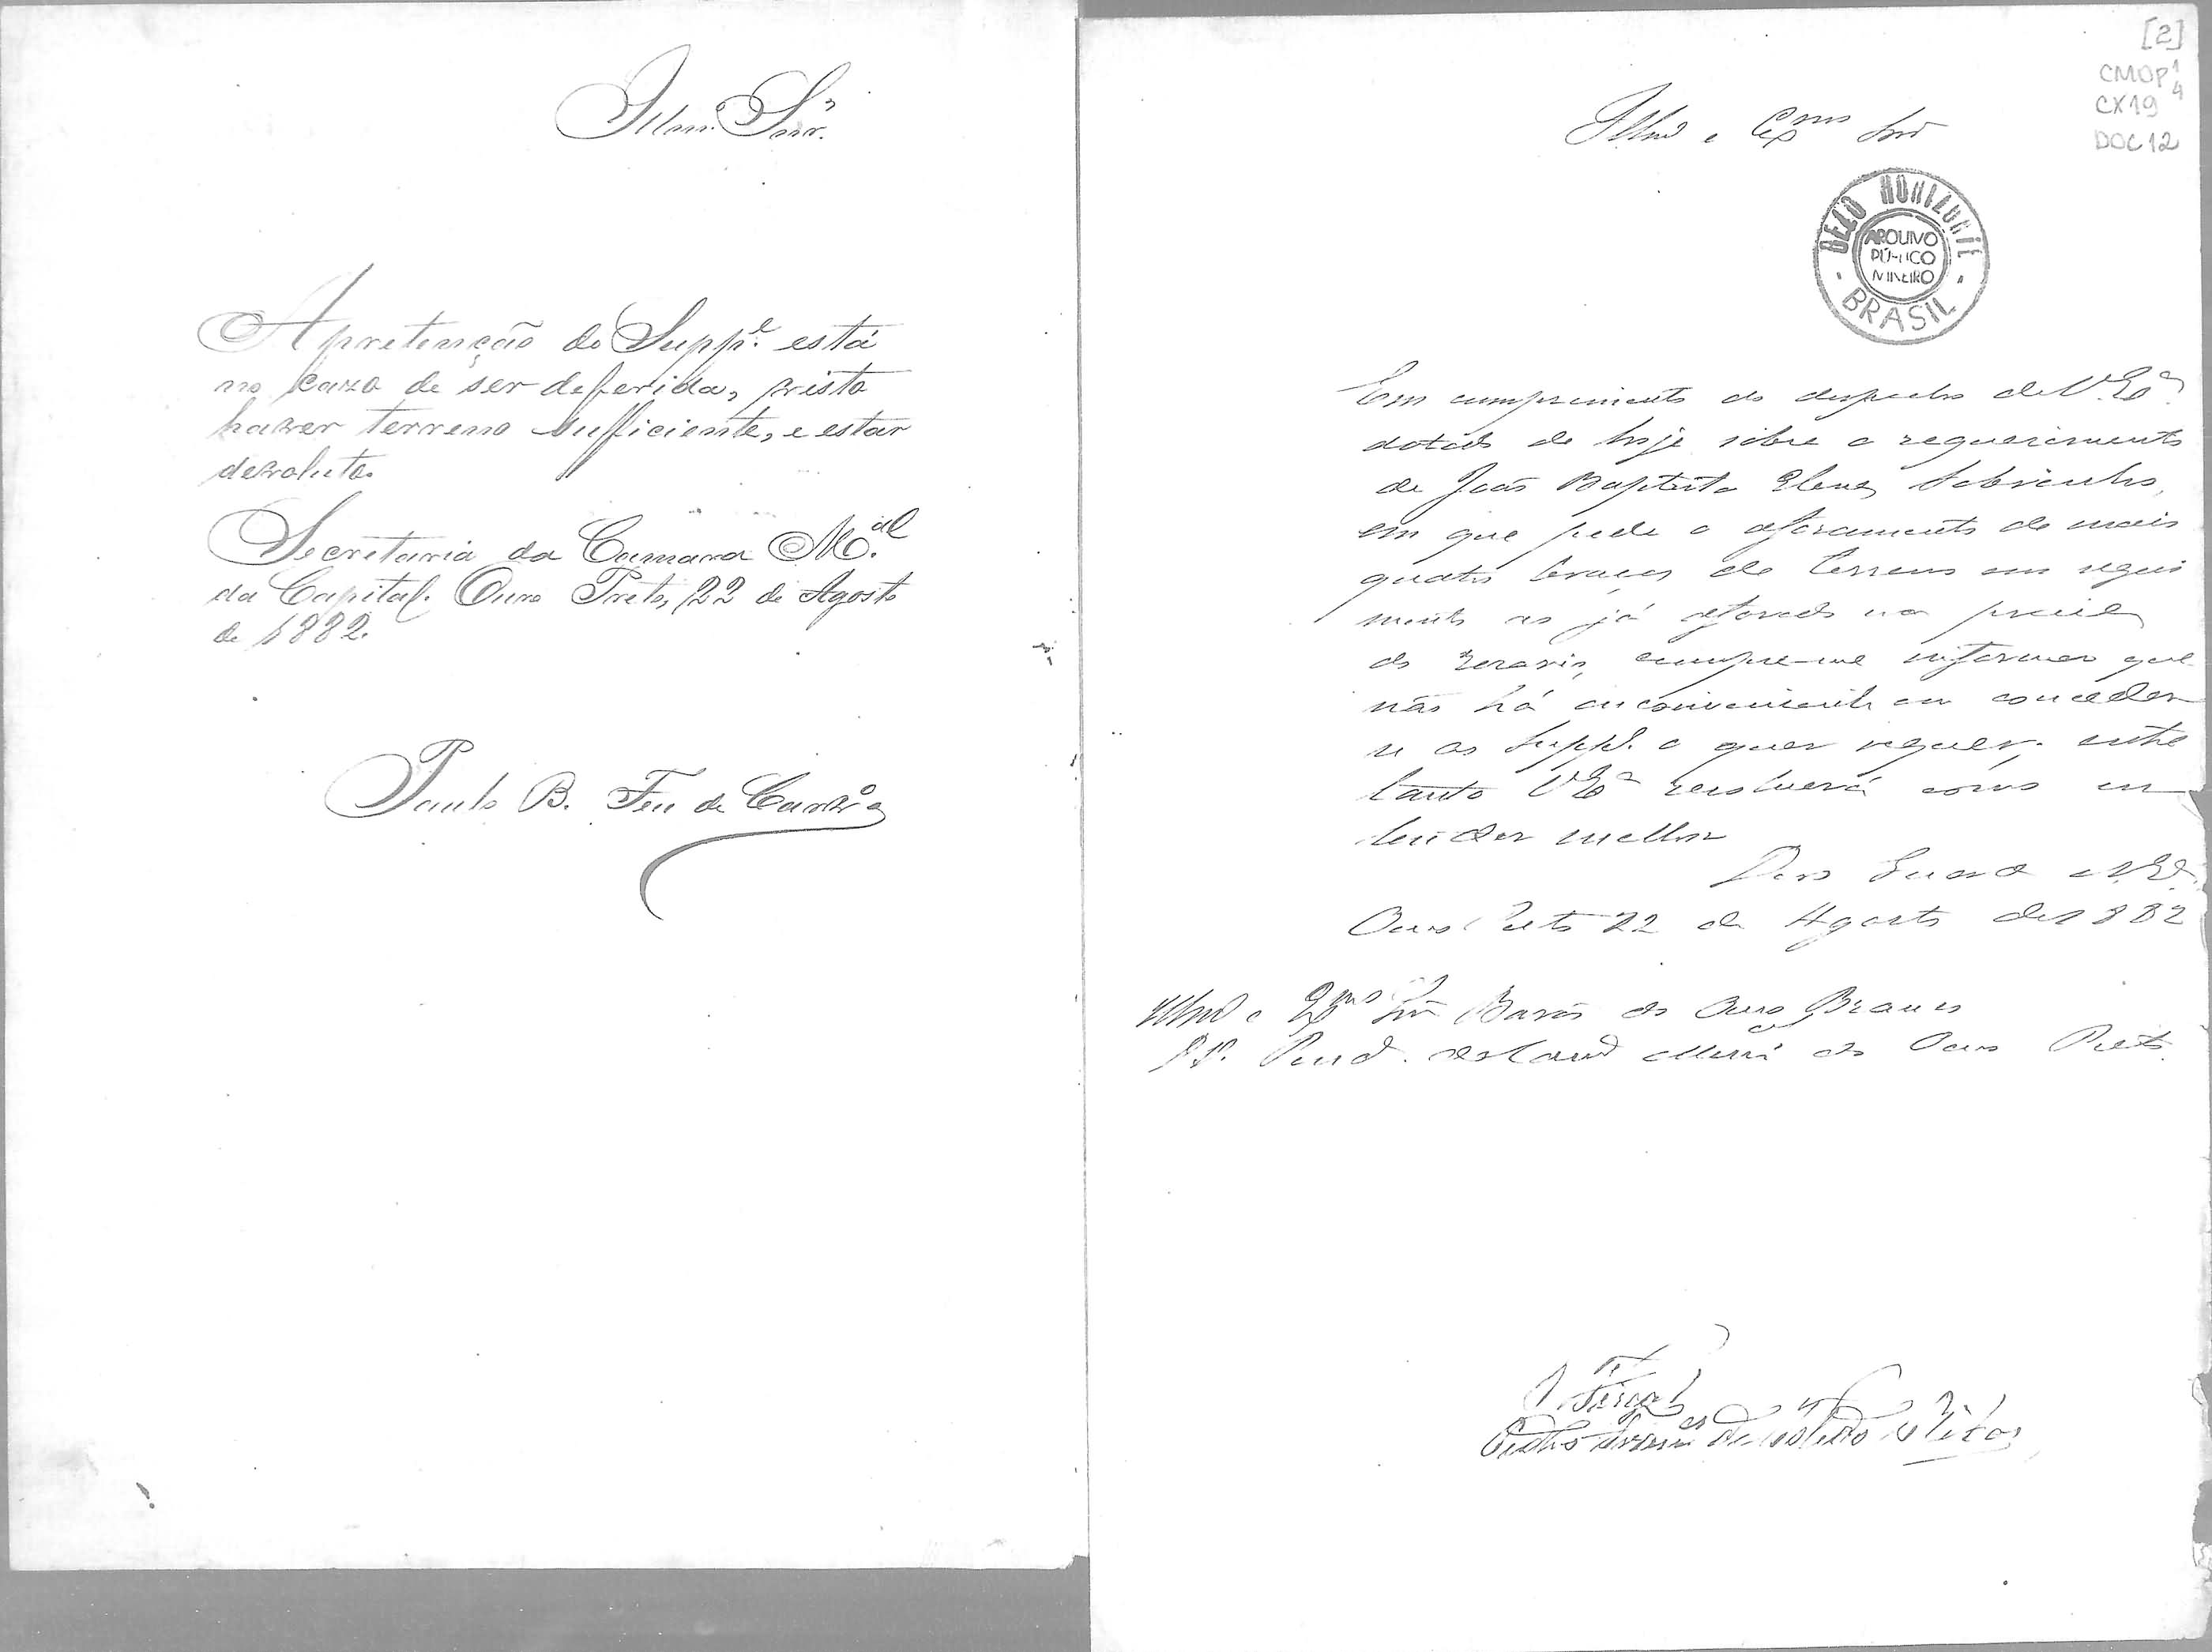 Illmo. Snr.
A pretenção do Supp.e está
no cazo de ser deferida, visto
haver terreno sufficiente, e estar
devoluto.
Secretaria da Camara M.al
da Capital. Ouro Preto, 22 de Agosto
de 1882.
Paulo B. Feu de Carv.o
[2]
CMOP 1/4
CX19
DOC 12
Illmo e Exmo Snr
BELO HORIZONTE
ARQUIVO
PÚBLICO
MINEIRO
- BRASIL -
Em cumprimento do despacho de V. Exa.
datado de hoje sobre o requerimento
de João Baptista Sobrinho,
em que pede o aforamento de mais
quatro braças de terreno em segui
mento as já aforado na praia
do cumpre-me informar que
não há inconveniente em conceder
se ao Supp.e o quer requer. entre
tanto V Exa resolverá como en
tender melhor
Deos Guarde a V. Exa.
Ouro Preto 22 de Agosto de 1882
Illmo e Exmo Snr Barão do Ouro Branco
do Ouro Preto.
O Fiscal